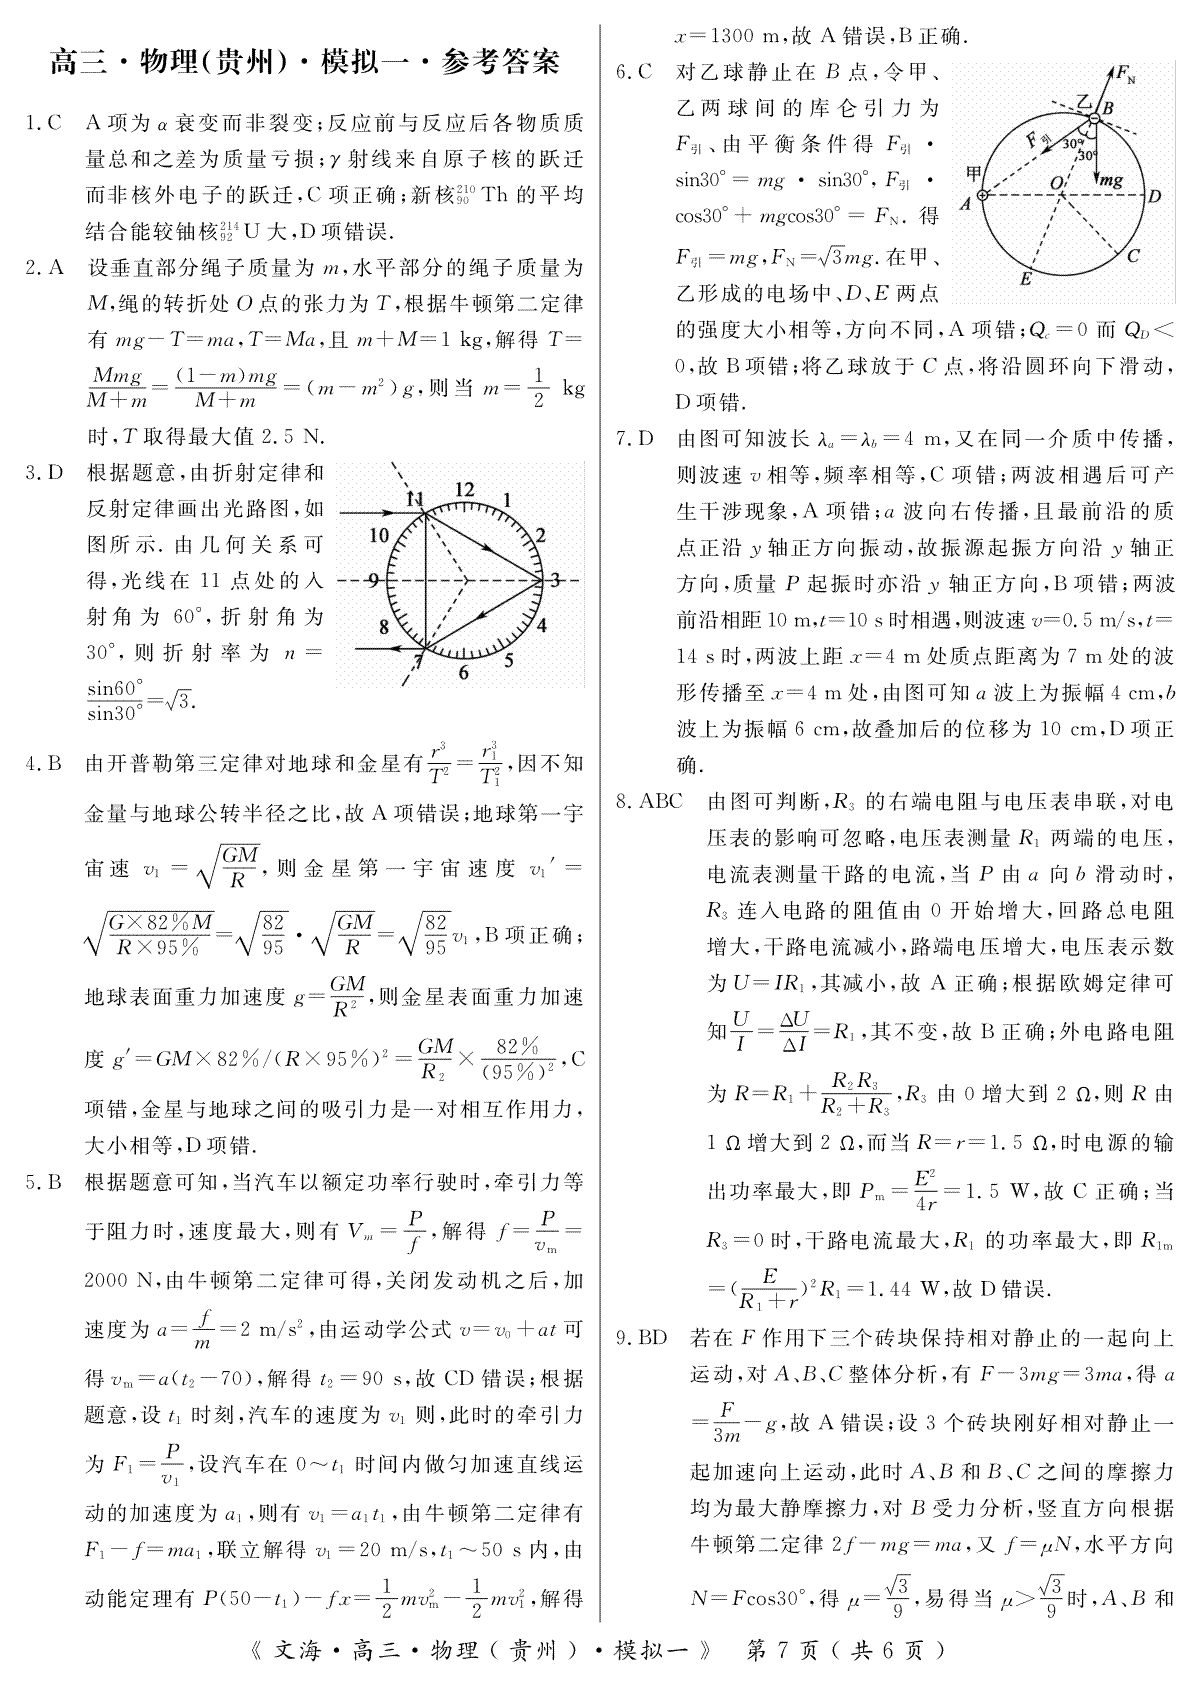 高三·物理(贵州)·模拟一·参考答案
1.C A项为α衰变而非裂变;反应前与反应后各物质质
量总和之差为质量亏损;γ射线来自原子核的跃迁
而非核外电子的跃迁,C项正确;新核²¹⁰₉₀Th的平均
结合能较铀核²¹⁴₉₂U大,D项错误.
2.A 设垂直部分绳子质量为m,水平部分的绳子质量为
M,绳的转折处O点的张力为T,根据牛顿第二定律
有mg-T=ma,T=Ma,且m+M=1 kg,解得T=
Mmg/(M+m)=(1-m)mg/(M+m)=(m-m²)g,则当m=1/2 kg
时,T取得最大值2.5 N.
3.D 根据题意,由折射定律和
反射定律画出光路图,如
图所示.由几何关系可
得,光线在11点处的入
射角为60°,折射角为
30°,则折射率为n=
sin60°/sin30°=√3.
11 12 1
10 2
9 3
8 4
7 6 5
4.B 由开普勒第三定律对地球和金星有r³/T²=r₁³/T₁²,因不知
金量与地球公转半径之比,故A项错误;地球第一宇
宙速v₁=√(GM/R),则金星第一宇宙速度v₁′=
√(G×82%M/(R×95%))=√(82/95)·√(GM/R)=√(82/95)v₁,B项正确;
地球表面重力加速度g=GM/R²,则金星表面重力加速
度g′=GM×82%/(R×95%)²=GM/R₂×82%/(95%)²,C
项错,金星与地球之间的吸引力是一对相互作用力,
大小相等,D项错.
5.B 根据题意可知,当汽车以额定功率行驶时,牵引力等
于阻力时,速度最大,则有Vₘ=P/f,解得f=P/vₘ=
2000 N,由牛顿第二定律可得,关闭发动机之后,加
速度为a=f/m=2 m/s²,由运动学公式v=v₀+at可
得vₘ=a(t₂-70),解得t₂=90 s,故CD错误;根据
题意,设t₁时刻,汽车的速度为v₁则,此时的牵引力
为F₁=P/v₁,设汽车在0~t₁时间内做匀加速直线运
动的加速度为a₁,则有v₁=a₁t₁,由牛顿第二定律有
F₁-f=ma₁,联立解得v₁=20 m/s,t₁~50 s内,由
动能定理有P(50-t₁)-fx=1/2mvₘ²-1/2mv₁²,解得
x=1300 m,故A错误,B正确.
6.C 对乙球静止在B点,令甲、
乙两球间的库仑引力为
F引、由平衡条件得F引·
sin30°=mg·sin30°,F引·
cos30°+mgcos30°=F_N.得
F引=mg,F_N=√3mg.在甲、
乙形成的电场中、D、E两点
F_N
乙 B
F引 30° 30°
甲 O mg
A D
E C
的强度大小相等,方向不同,A项错;Q_c=0而Q_D<
0,故B项错;将乙球放于C点,将沿圆环向下滑动,
D项错.
7.D 由图可知波长λₐ=λ_b=4 m,又在同一介质中传播,
则波速v相等,频率相等,C项错;两波相遇后可产
生干涉现象,A项错;a波向右传播,且最前沿的质
点正沿y轴正方向振动,故振源起振方向沿y轴正
方向,质量P起振时亦沿y轴正方向,B项错;两波
前沿相距10 m,t=10 s时相遇,则波速v=0.5 m/s,t=
14 s时,两波上距x=4 m处质点距离为7 m处的波
形传播至x=4 m处,由图可知a波上为振幅4 cm,b
波上为振幅6 cm,故叠加后的位移为10 cm,D项正
确.
8.ABC 由图可判断,R₃的右端电阻与电压表串联,对电
压表的影响可忽略,电压表测量R₁两端的电压,
电流表测量干路的电流,当P由a向b滑动时,
R₃连入电路的阻值由0开始增大,回路总电阻
增大,干路电流减小,路端电压增大,电压表示数
为U=IR₁,其减小,故A正确;根据欧姆定律可
知U/I=ΔU/ΔI=R₁,其不变,故B正确;外电路电阻
为R=R₁+R₂R₃/(R₂+R₃),R₃由0增大到2 Ω,则R由
1 Ω增大到2 Ω,而当R=r=1.5 Ω,时电源的输
出功率最大,即Pₘ=E²/4r=1.5 W,故C正确;当
R₃=0时,干路电流最大,R₁的功率最大,即R₁ₘ
=(E/(R₁+r))²R₁=1.44 W,故D错误.
9.BD 若在F作用下三个砖块保持相对静止的一起向上
运动,对A、B、C整体分析,有F-3mg=3ma,得a
=F/3m-g,故A错误;设3个砖块刚好相对静止一
起加速向上运动,此时A、B和B、C之间的摩擦力
均为最大静摩擦力,对B受力分析,竖直方向根据
牛顿第二定律2f-mg=ma,又f=μN,水平方向
N=Fcos30°,得μ=√3/9,易得当μ>√3/9时,A、B和
《文海·高三·物理(贵州)·模拟一》 第7页(共6页)